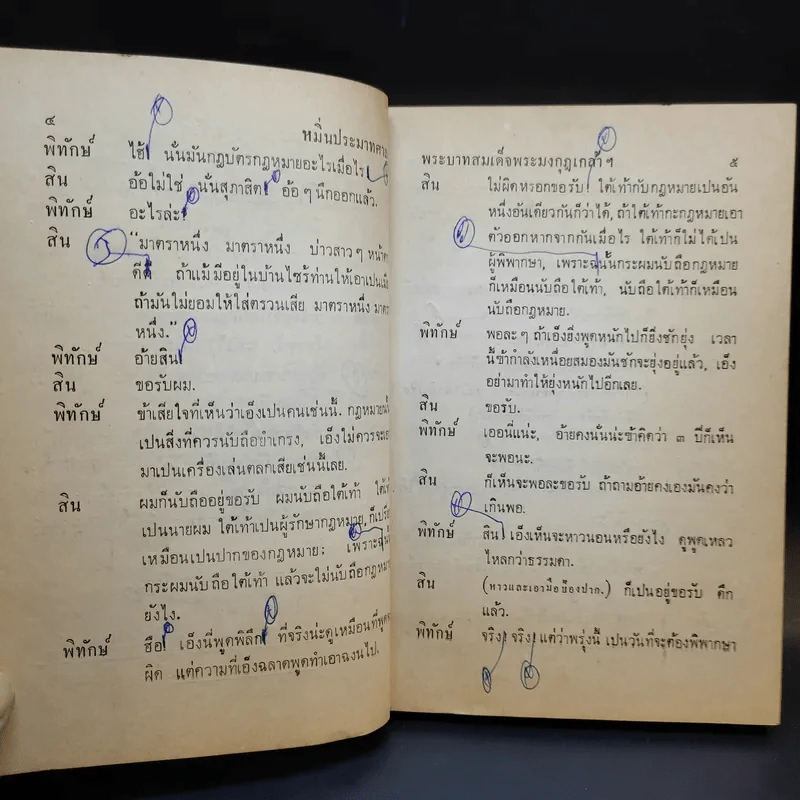 ๔
หมิ่นประมาทศาล
พิทักษ์ ไฮ้ นั่นมันกฎบัตรกฎหมายอะไรเมื่อไร
สิน อ้อไม่ใช่ นั่นสุภาสิต อ้อ ๆ นึกออกแล้ว.
พิทักษ์ อะไรล่ะ
สิน “มาตราหนึ่ง มาตราหนึ่ง บ่าวสาว ๆ หน้าตา
ดีดี ถ้าแม้มีอยู่ในบ้านไซร้ท่านให้เอาเปนเมีย
ถ้ามันไม่ยอมให้ใส่ตรวนเสีย มาตราหนึ่ง มาตรา
หนึ่ง.”
พิทักษ์ อ้ายสิน
สิน ขอรับผม.
พิทักษ์ ข้าเสียใจที่เห็นว่าเอ็งเปนคนเช่นนี้. กฎหมายนั้น
เปนสิ่งที่ควรนับถือยำเกรง, เอ็งไม่ควรจะเอา
มาเปนเครื่องเล่นตลกเสียเช่นนี้เลย.
สิน ผมก็นับถืออยู่ขอรับ ผมนับถือใต้เท้า ใต้เท้า
เปนนายผม ใต้เท้าเปนผู้รักษากฎหมาย, ก็เปรียบ
เหมือนเปนปากของกฎหมาย; เพราะฉนั้น
กระผมนับถือใต้เท้า แล้วจะไม่นับถือกฎหมาย
ยังไง.
พิทักษ์ ฮือ เอ็งนี่พูดพิลึก ที่จริงน่ะดูเหมือนที่พูด
ผิด แต่ความที่เอ็งฉลาดพูดทำเอาฉงนไป.
พระบาทสมเด็จพระมงกุฎเกล้า ฯ
๕
สิน ไม่ผิดหรอกขอรับ ใต้เท้ากับกฎหมายเปนอัน
หนึ่งอันเดียวกันก็ว่าได้, ถ้าใต้เท้ากะกฎหมายเอา
ตัวออกหากจากกันเมื่อไร ใต้เท้าก็ไม่ได้เปน
ผู้พิพากษา, เพราะฉนั้นกระผมนับถือกฎหมาย
ก็เหมือนนับถือใต้เท้า, นับถือใต้เท้าก็เหมือน
นับถือกฎหมาย.
พิทักษ์ พอละ ๆ ถ้าเอ็งยิ่งพูดหนักไปก็ยิ่งชักยุ่ง เวลา
นี้ข้ากำลังเหนื่อยสมองมันชักจะยุ่งอยู่แล้ว, เอ็ง
อย่ามาทำให้ยุ่งหนักไปอีกเลย.
สิน ขอรับ.
พิทักษ์ เออนี่แน่ะ, อ้ายคงนั่นน่ะข้าคิดว่า ๓ ปีก็เห็น
จะพอนะ.
สิน ก็เห็นจะพอละขอรับ ถ้าถามอ้ายคงเองมันคงว่า
เกินพอ.
พิทักษ์ สิน เอ็งเห็นจะหาวนอนหรือยังไง ดูพูดเหลว
ไหลกว่าธรรมดา.
สิน (หาวและเอามือป้องปาก.) ก็เปนอยู่ขอรับ ดึก
แล้ว.
พิทักษ์ จริง จริง แต่ว่าพรุ่งนี้ เปนวันที่จะต้องพิพากษา